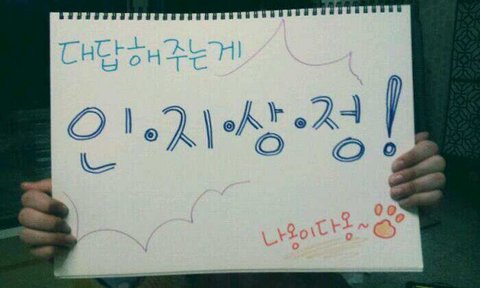 대답해주는게
인·지·상·정!
나옹이다옹~